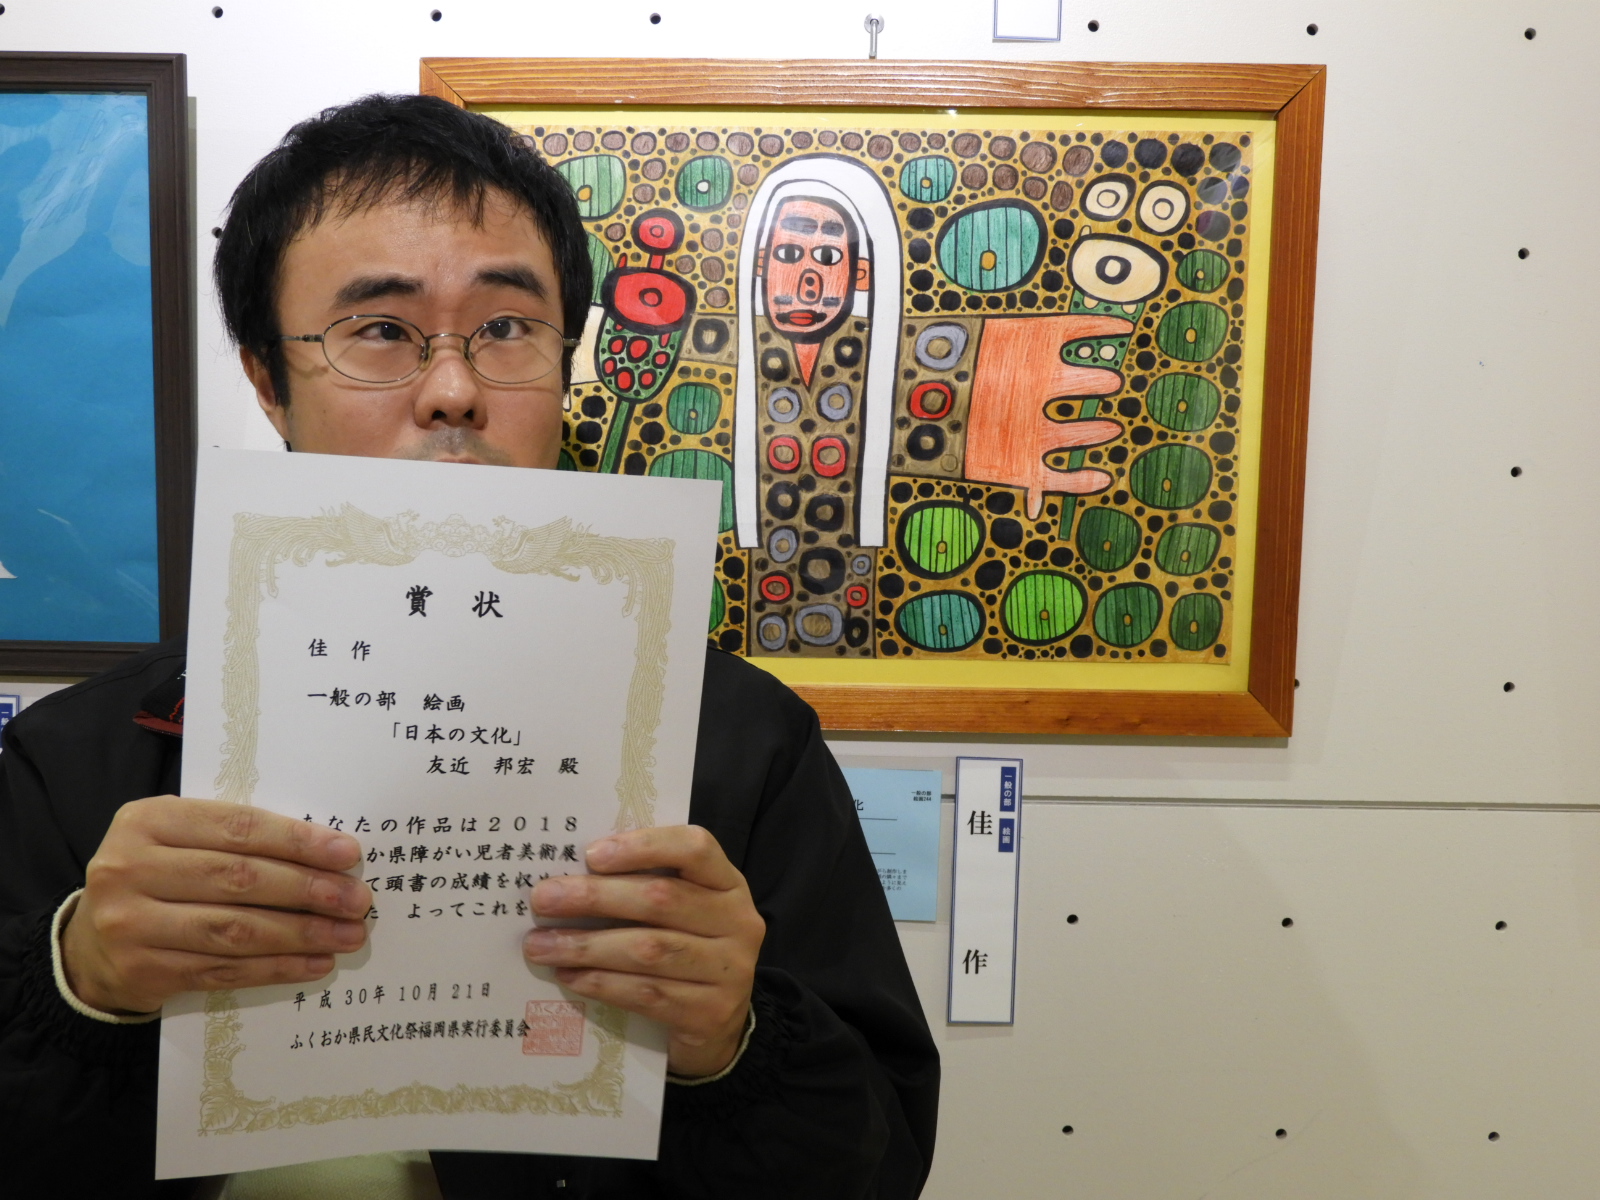 賞状
佳作
一般の部 絵画
「日本の文化」
友近 邦宏 殿
なたの作品は2018
か県障がい児者美術展
て頭書の成績を収め
た よってこれを
平成30年10月21日
ふくおか県民文化祭福岡県実行委員会
化
一般の部
絵画244
一般の部 絵画
佳作